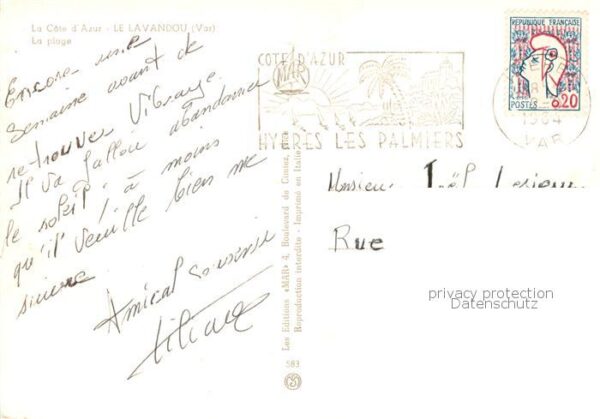 La Côte d'Azur - LE LAVANDOU (Var)
La plage
Encore une
semaine avant de
retrouver
Il va falloir abandonner
le soleil ! à moins
qu'il veuille bien me
suivre
Amical souvenir
Liliane
Les Editions «MAR» 4, Boulevard de
Reproduction interdite - Imprimé en Italie
583
COTE D'AZUR
MAR
HYERES LES PALMIERS
REPUBLIQUE FRANÇAISE
POSTES 0.20
1964
VAR
Monsieur Joël
Rue
privacy protection
Datenschutz